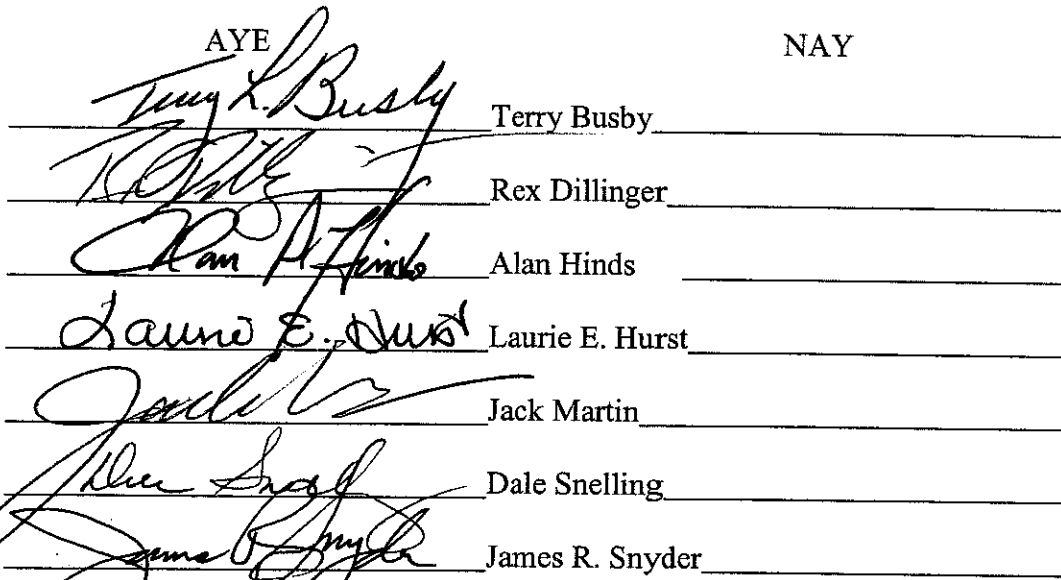 AYE NAY
Terry L. Busby Terry Busby
Rex Dillinger
Alan Hinds
Laurie E. Hurst Laurie E. Hurst
Jack Martin
Dale Snelling
James R. Snyder James R. Snyder